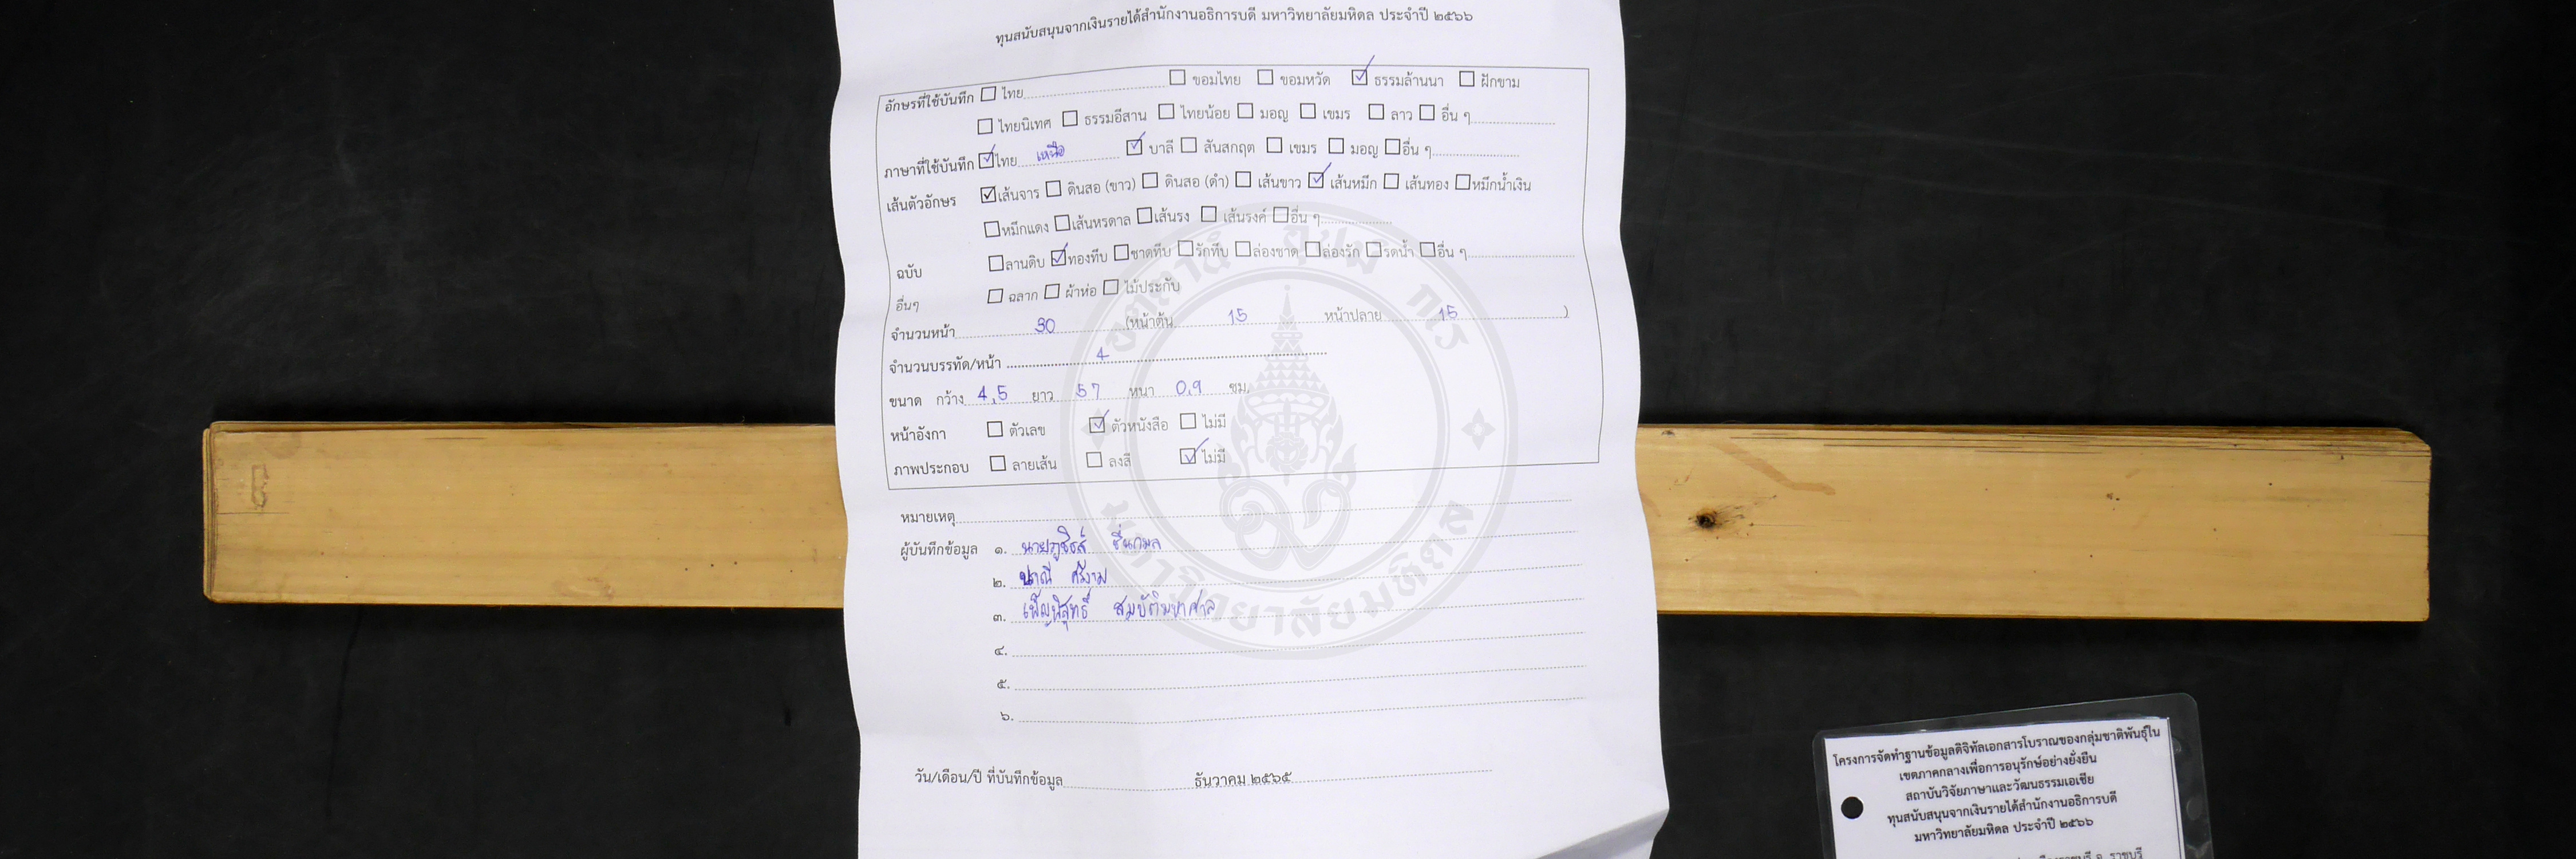 ทุนสนับสนุนจากเงินรายได้สำนักงานอธิการบดี มหาวิทยาลัยมหิดล ประจำปี ๒๕๖๖
อักษรที่ใช้บันทึก ☐ ไทย ☐ ขอมไทย ☐ ขอมหวัด ☑ ธรรมล้านนา ☐ ฝักขาม
☐ ไทยนิเทศ ☐ ธรรมอีสาน ☐ ไทยน้อย ☐ มอญ ☐ เขมร ☐ ลาว ☐ อื่น ๆ
ภาษาที่ใช้บันทึก ☑ ไทย เหนือ ☑ บาลี ☐ สันสกฤต ☐ เขมร ☐ มอญ ☐ อื่น ๆ
เส้นตัวอักษร ☑ เส้นจาร ☐ ดินสอ (ขาว) ☐ ดินสอ (ดำ) ☐ เส้นขาว ☑ เส้นหมึก ☐ เส้นทอง ☐ หมึกน้ำเงิน
☐ หมึกแดง ☐ เส้นหรดาล ☐ เส้นรง ☐ เส้นรงค์ ☐ อื่น ๆ
ฉบับ ☐ ลานดิบ ☑ ทองทึบ ☐ ชาดทึบ ☐ รักทึบ ☐ ล่องชาด ☐ ล่องรัก ☐ รดน้ำ ☐ อื่น ๆ
อื่นๆ ☐ ฉลาก ☐ ผ้าห่อ ☐ ไม้ประกับ
จำนวนหน้า 30 (หน้าต้น 15 หน้าปลาย 15 )
จำนวนบรรทัด/หน้า 4
ขนาด กว้าง 4.5 ยาว 57 หนา 0.9 ซม.
หน้าอังกา ☐ ตัวเลข ☑ ตัวหนังสือ ☐ ไม่มี
ภาพประกอบ ☐ ลายเส้น ☐ ลงสี ☑ ไม่มี
หมายเหตุ
ผู้บันทึกข้อมูล ๑. นายภูชิชส์ ชื่นกมล
๒. ศรีงาม
๓. เพ็ญพิสุทธิ์ สมบัติมหาศาล
๔.
๕.
๖.
วัน/เดือน/ปี ที่บันทึกข้อมูล ธันวาคม ๒๕๖๕
มหาวิทยาลัยมหิดล
โครงการจัดทำฐานข้อมูลดิจิทัลเอกสารโบราณของกลุ่มชาติพันธุ์ใน
เขตภาคกลางเพื่อการอนุรักษ์อย่างยั่งยืน
สถาบันวิจัยภาษาและวัฒนธรรมเอเชีย
ทุนสนับสนุนจากเงินรายได้สำนักงานอธิการบดี
มหาวิทยาลัยมหิดล ประจำปี ๒๕๖๖